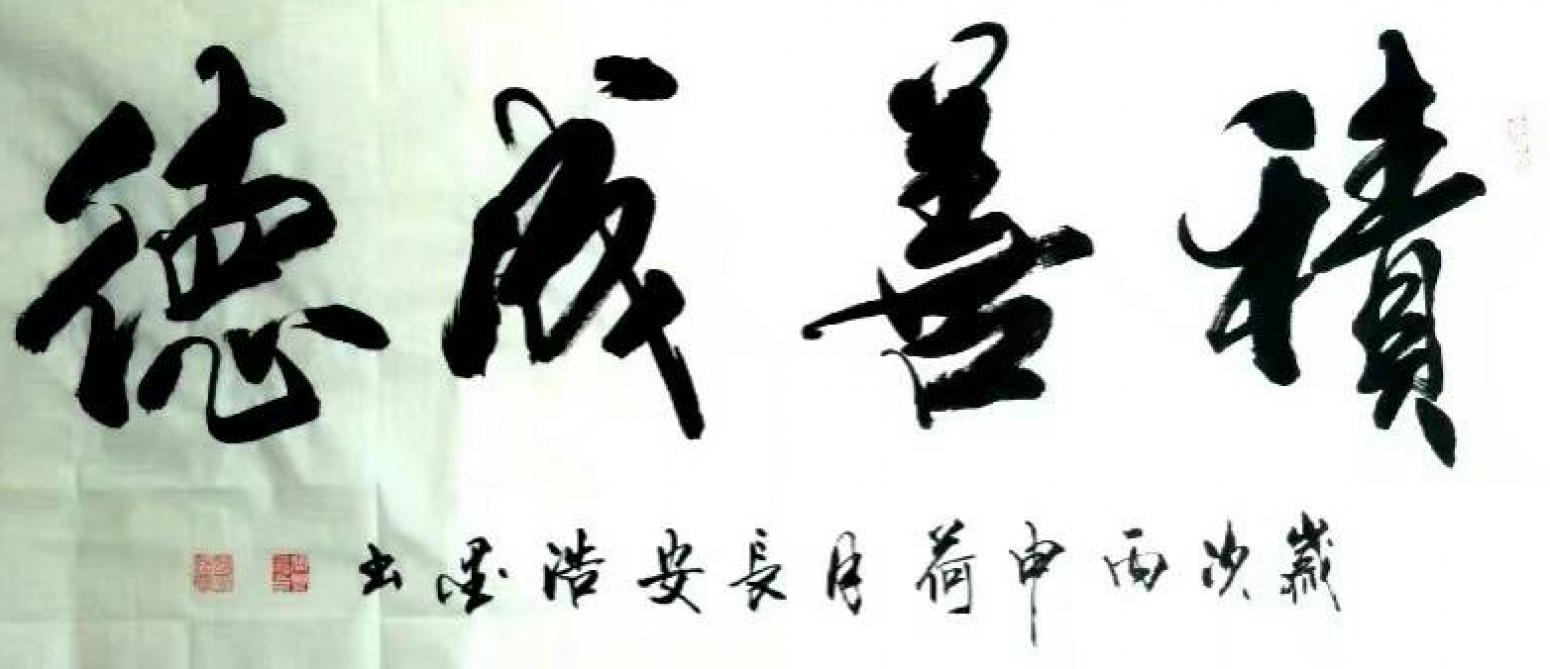 積善成德
歲次丙申荷月長安浩墨書